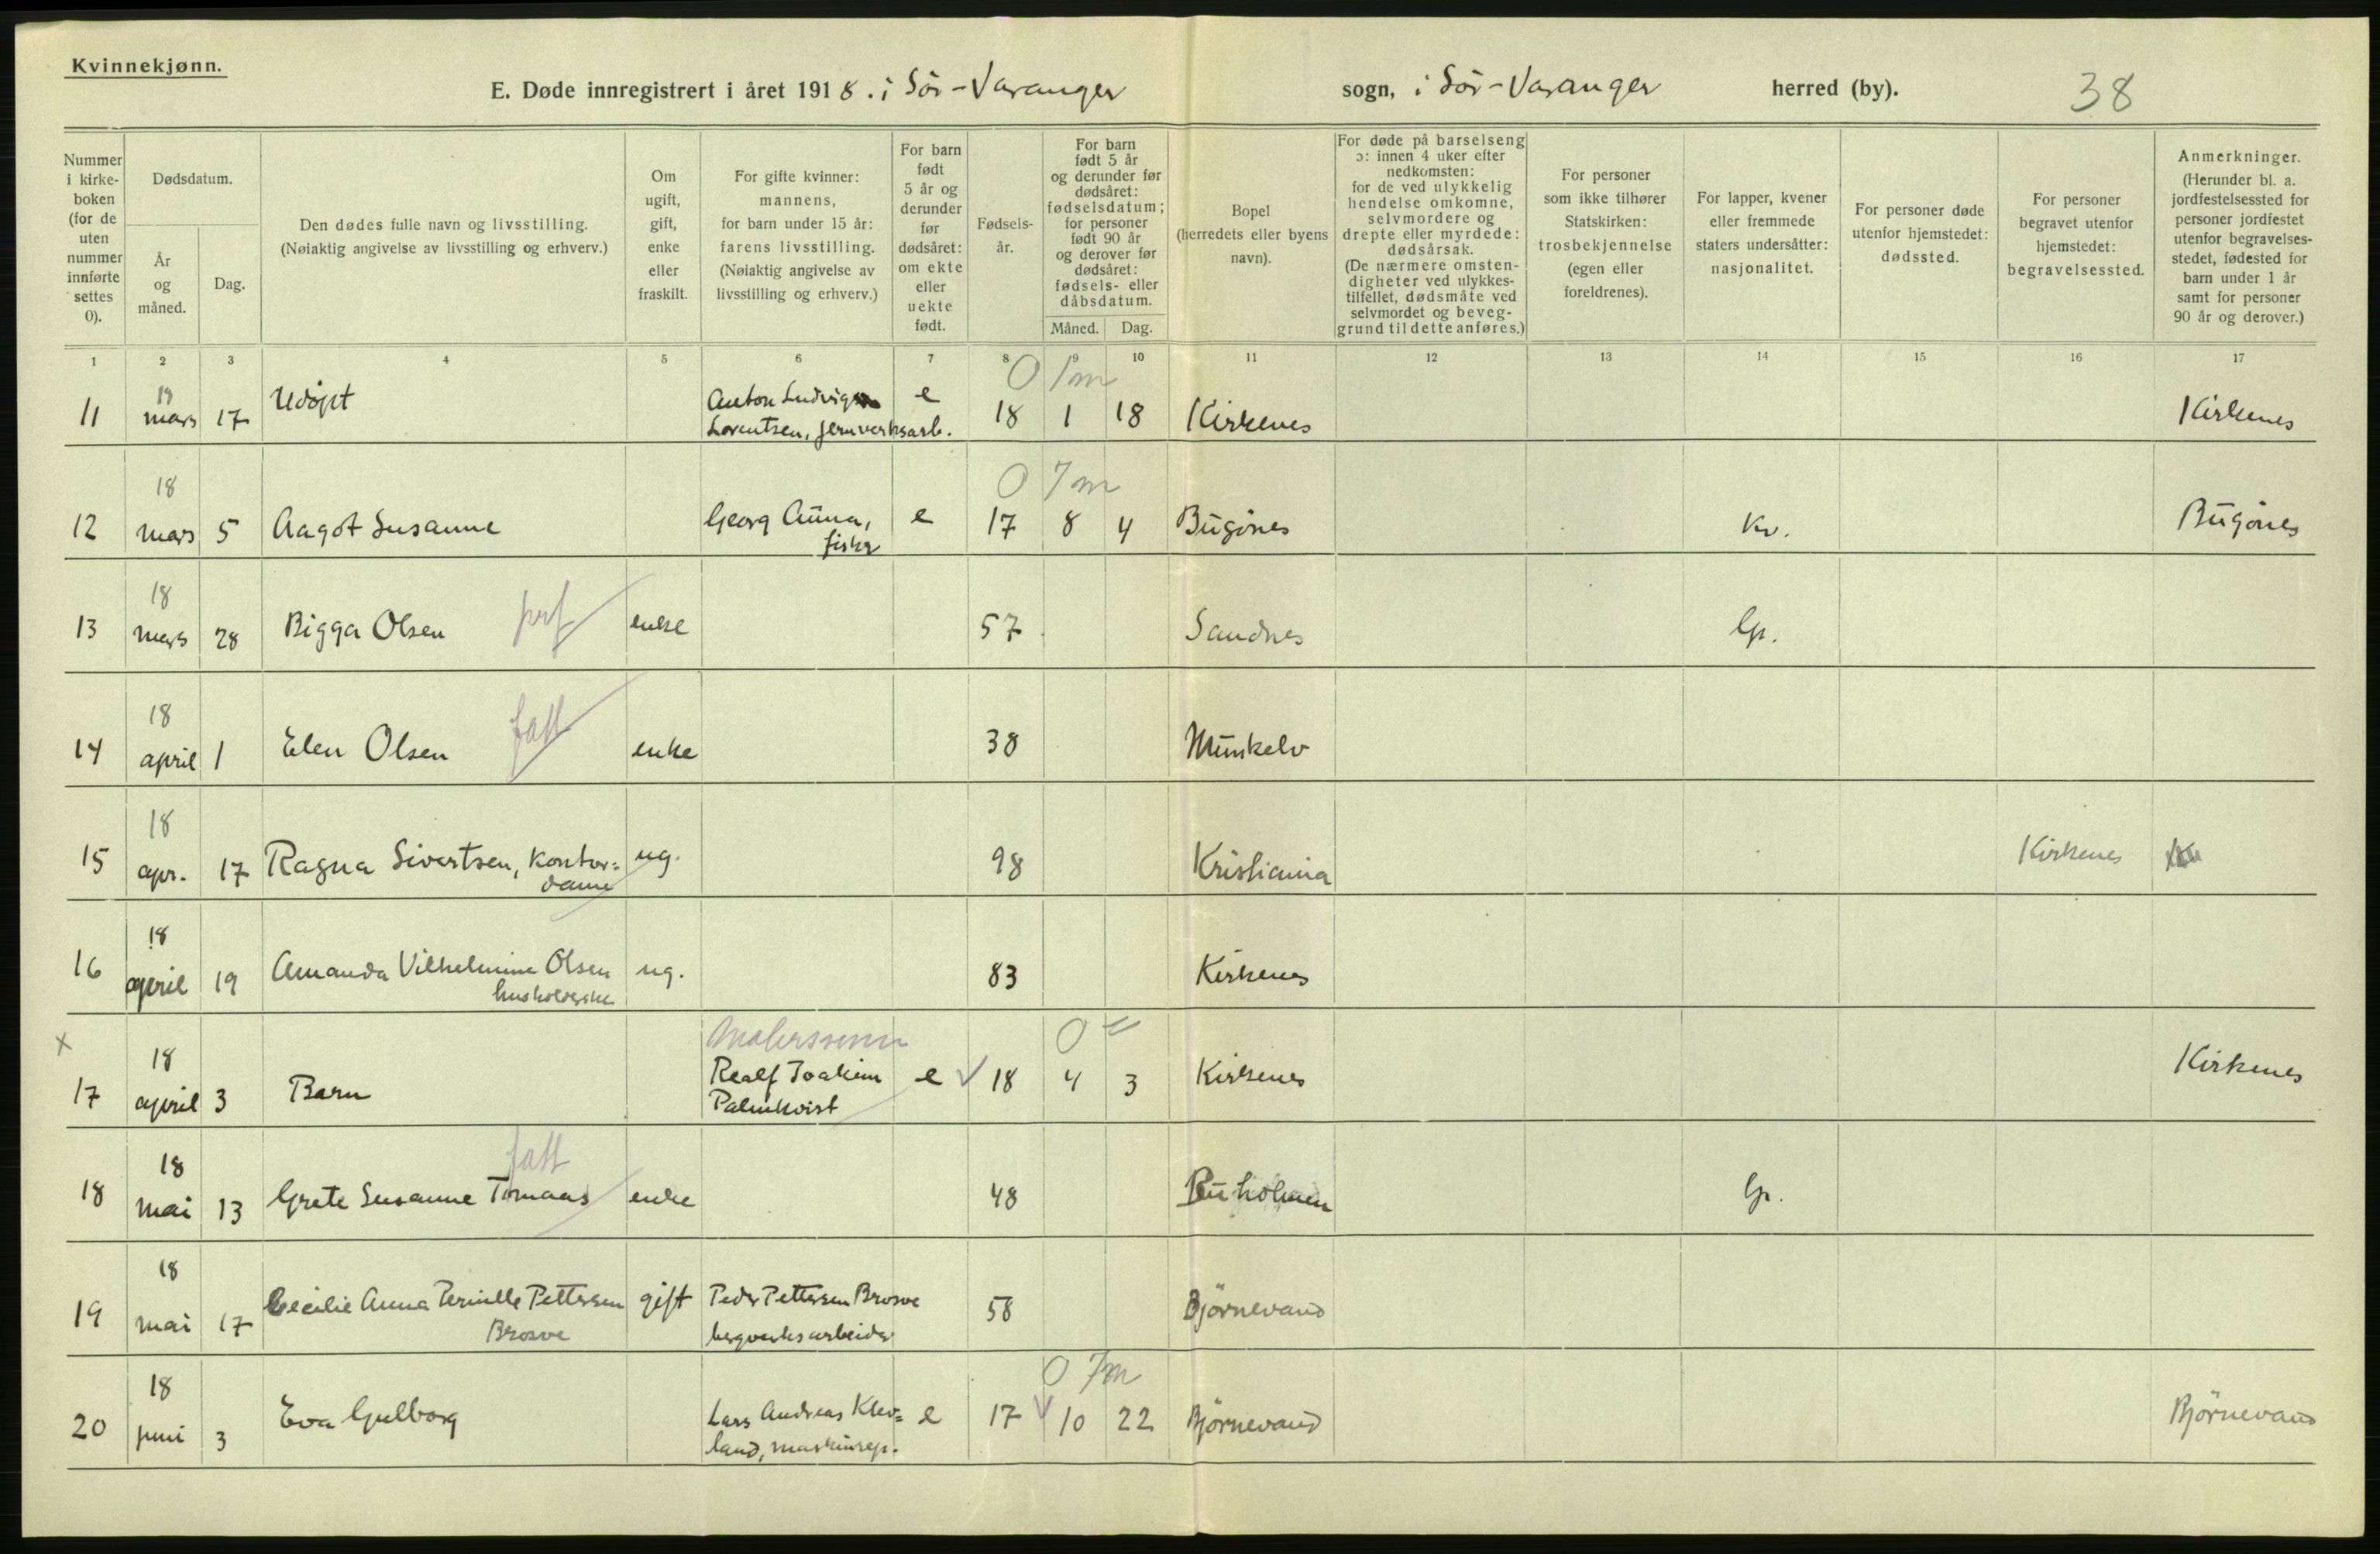 Kvinnekjønn.
E. Døde innregistrert i året 1918. i Sör-Varanger sogn, i Sör-Varanger herred (by). 38
Nummer i kirke-boken (for de uten nummer innførte settes 0).
Dødsdatum.
År og måned.
Dag.
Den dødes fulle navn og livsstilling.
(Nøiaktig angivelse av livsstilling og erhverv.)
Om ugift, gift, enke eller fraskilt.
For gifte kvinner: mannens, for barn under 15 år: farens livsstilling.
(Nøiaktig angivelse av livsstilling og erhverv.)
For barn født 5 år og derunder før dødsåret: om ekte eller uekte født.
Fødsels-år.
For barn født 5 år og derunder før dødsåret: fødselsdatum; for personer født 90 år og derover før dødsåret: fødsels- eller dåbsdatum.
Måned. Dag.
Bopel (herredets eller byens navn).
For døde på barselseng ɔ: innen 4 uker efter nedkomsten: for de ved ulykkelig hendelse omkomne, selvmordere og drepte eller myrdede: dødsårsak.
(De nærmere omsten-digheter ved ulykkes-tilfellet, dødsmåte ved selvmordet og beveg-grund til dette anføres.)
For personer som ikke tilhører Statskirken: trosbekjennelse (egen eller foreldrenes).
For lapper, kvener eller fremmede staters undersåtter: nasjonalitet.
For personer døde utenfor hjemstedet: dødssted.
For personer begravet utenfor hjemstedet: begravelsessted.
Anmerkninger.
(Herunder bl. a. jordfestelsessted for personer jordfestet utenfor begravelses-stedet, fødested for barn under 1 år samt for personer 90 år og derover.)
1 2 3 4 5 6 7 8 9 10 11 12 13 14 15 16 17
0 1m
11 18 mars 17 Udöpt Anton Ludvigsen Lorentsen, jernverksarb. e 18 1 18 Kirkenes Kirkenes
0 7m
12 18 mars 5 Aagot Susanne Georg Aüna, fisker e 17 8 4 Bügönes Kv. Bügönes
13 18 mars 28 Bigga Olsen enke 57 Sandnes lp.
14 18 april 1 Elen Olsen fatt enke 38 Münkelv
15 18 apr. 17 Ragna Sivertsen, kontor=dame ug. 98 Kristiania Kirkenes
16 18 april 19 Amanda Vilhelmine Olsen husholderske ug. 83 Kirkenes
x 0
17 18 april 3 Barn Realf Joakim Palmkvist e 18 4 3 Kirkenes Kirkenes
18 18 mai 13 Grete Susanne Tomaas fatt enke 48 Büholmen lp.
19 18 mai 17 Cecilie Anna Pernille Pettersen Brosve gift Peder Pettersen Brosve bergverksarbeider 58 Björnevand
0 7m
20 18 juni 3 Eva Gulborg Lars Andreas Klev=land, maskinrep. e 17 10 22 Björnevand Björnevand